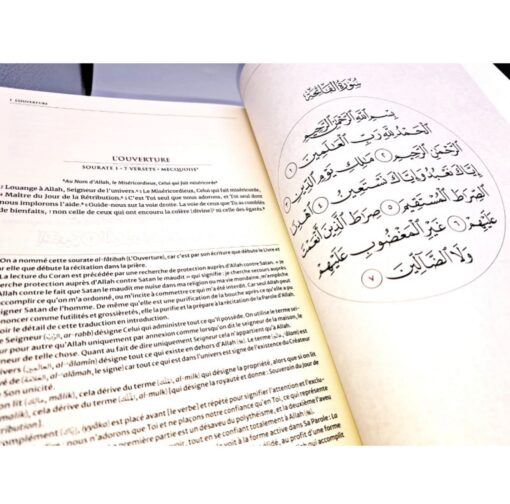 1 L'OUVERTURE
L'OUVERTURE
SOURATE 1 • 7 VERSETS • MECQUOISE
¹Au Nom d'Allah, le Miséricordieux, Celui qui fait miséricorde²
² Louange à Allah, Seigneur de l'univers.³ Le Miséricordieux, Celui qui fait miséricorde,
« Maître du Jour de la Rétribution. C'est Toi seul que nous adorons, et Toi seul dont
nous implorons l'aide. Guide-nous sur la voie droite. La voie de ceux que Tu as comblés
de bienfaits, non celle de ceux qui ont encouru la colère [divine] ni celle des égarés.
On a nommé cette sourate al-fâtihah (L'Ouverture), car c'est par son écriture que débute le Livre et
par elle que débute la récitation dans la prière.
La lecture du Coran est précédée par une recherche de protection auprès d'Allah contre Satan
cherche protection auprès d'Allah contre Satan le maudit » qui signifie : je cherche secours auprès
Allah contre le fait que Satan le maudit me nuise dans ma religion ou ma vie mondaine,
accomplir ce qu'on m'a ordonné, ou m'incite à commettre ce qui m'a été défendu. Car seul Allah peut
éloigner Satan de l'homme. De même qu'elle est une purification de la bouche après ce qu'elle a pu
prononcer comme futilités et grossièretés, elle la purifie et la prépare à la récitation de la Parole d'Allah.
voir le détail de cette traduction en introduction.
Seigneur (ar-rabb) désigne Celui qui administre tout ce qu'il possède. On utilise le terme
pour autre qu'Allah uniquement par annexion comme lorsqu'on dit le seigneur de la maison, le
seigneur de telle chose. Quant au fait de dire uniquement Seigneur cela n'appartient qu'à Allah.
désigne tout ce qui existe en dehors d'Allah. Le terme
al-'alâmah, le signe) car tout ce qui est dans l'univers est signe de l'existence du Créateur
Son unicité.
mâlik), cela dérive du terme (al-milk) qui désigne la propriété, alors que si on lit
malik), cela dérive du terme (al-mulk) qui désigne la royauté et donne : Souverain du Jour de
Rétribution].
complément (iyyâka) est placé avant [le verbe] et répété pour signifier l'attention et
nous n'adorons que Toi et ne plaçons notre confiance qu'en Toi, ce qui représente
première partie est un désaveu du polythéisme, et la deuxième l'aveu
سورة الفاتحة
بسم الله الرحمن الرحيم
الحمد لله رب العالمين ١
الرحمن الرحيم ٢ مالك يوم الدين
إياك نعبد وإياك نستعين ٤ اهدنا
الصراط المستقيم ٥ صراط الذين أنعمت
عليهم ٦ غير المغضوب عليهم
ولا الضالين ٧